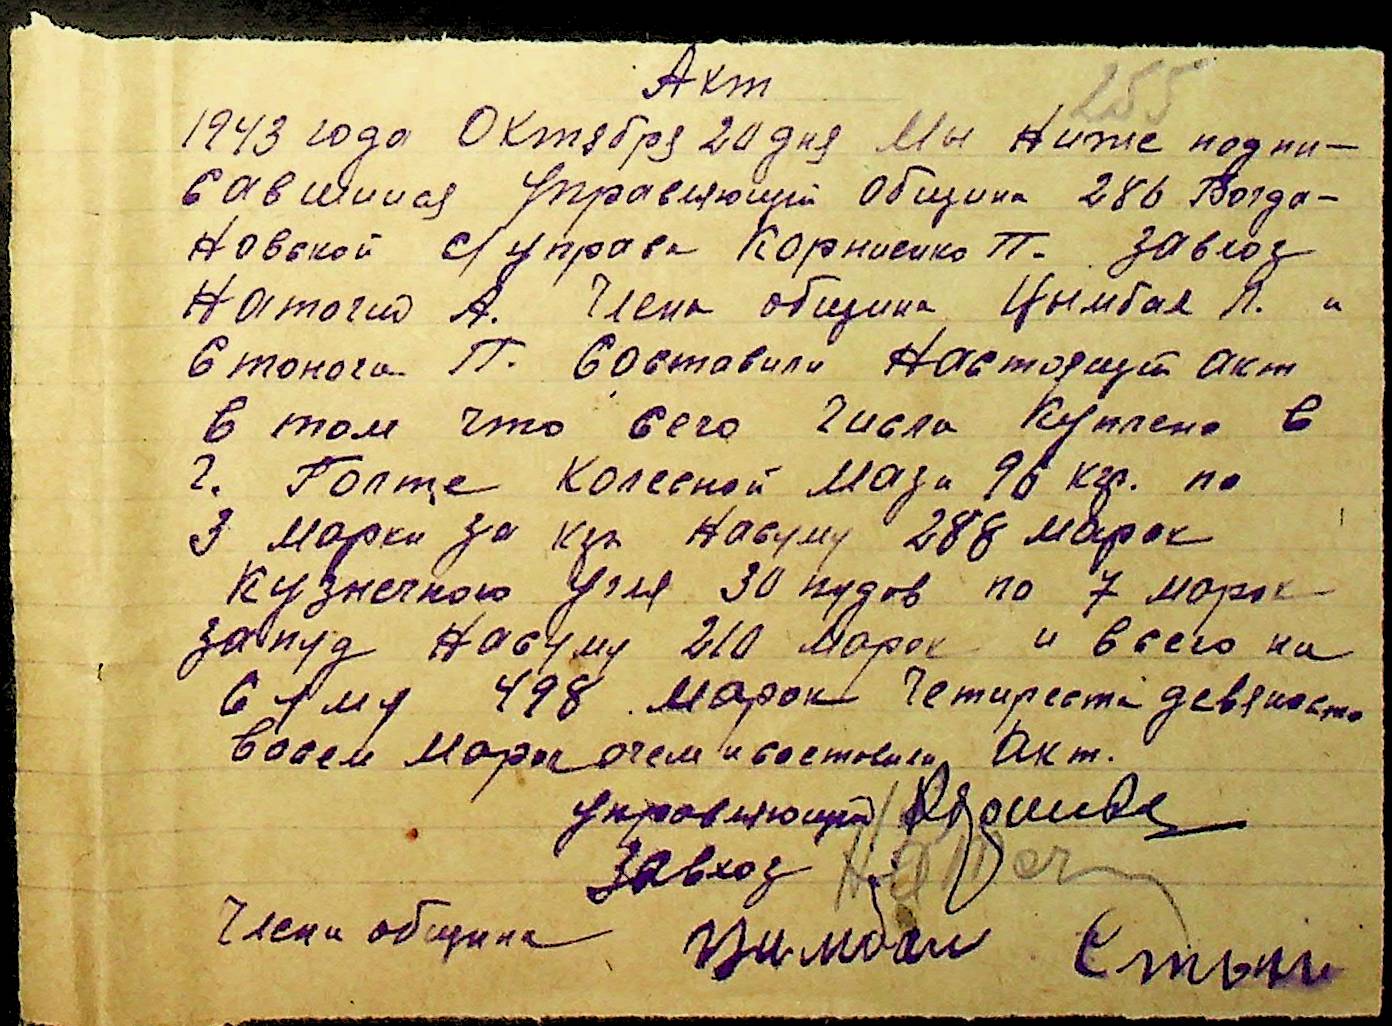 Акт
255
1943 года Октября 20 дня Мы Ниже подпи-
савшиися Управляющий община 286 Богда-
Новской с/управи Корниенко П. завхоз
Натогий А. Члени община Цымбал Л. и
Стонога П. Составили Настоящий акт
в том что сего числа Куплено в
г. Голте Колесной Мази 96 кг. по
3 марки за кгр На суму 288 марок
Кузнечного Угля 30 пудов по 7 марок
за пуд На суму 210 марок и всего на
Суму 498 Марок Четиреста девяносто
восем Марок очем и составили Акт.
Управляющий
Завхоз
Члени община Цимбал